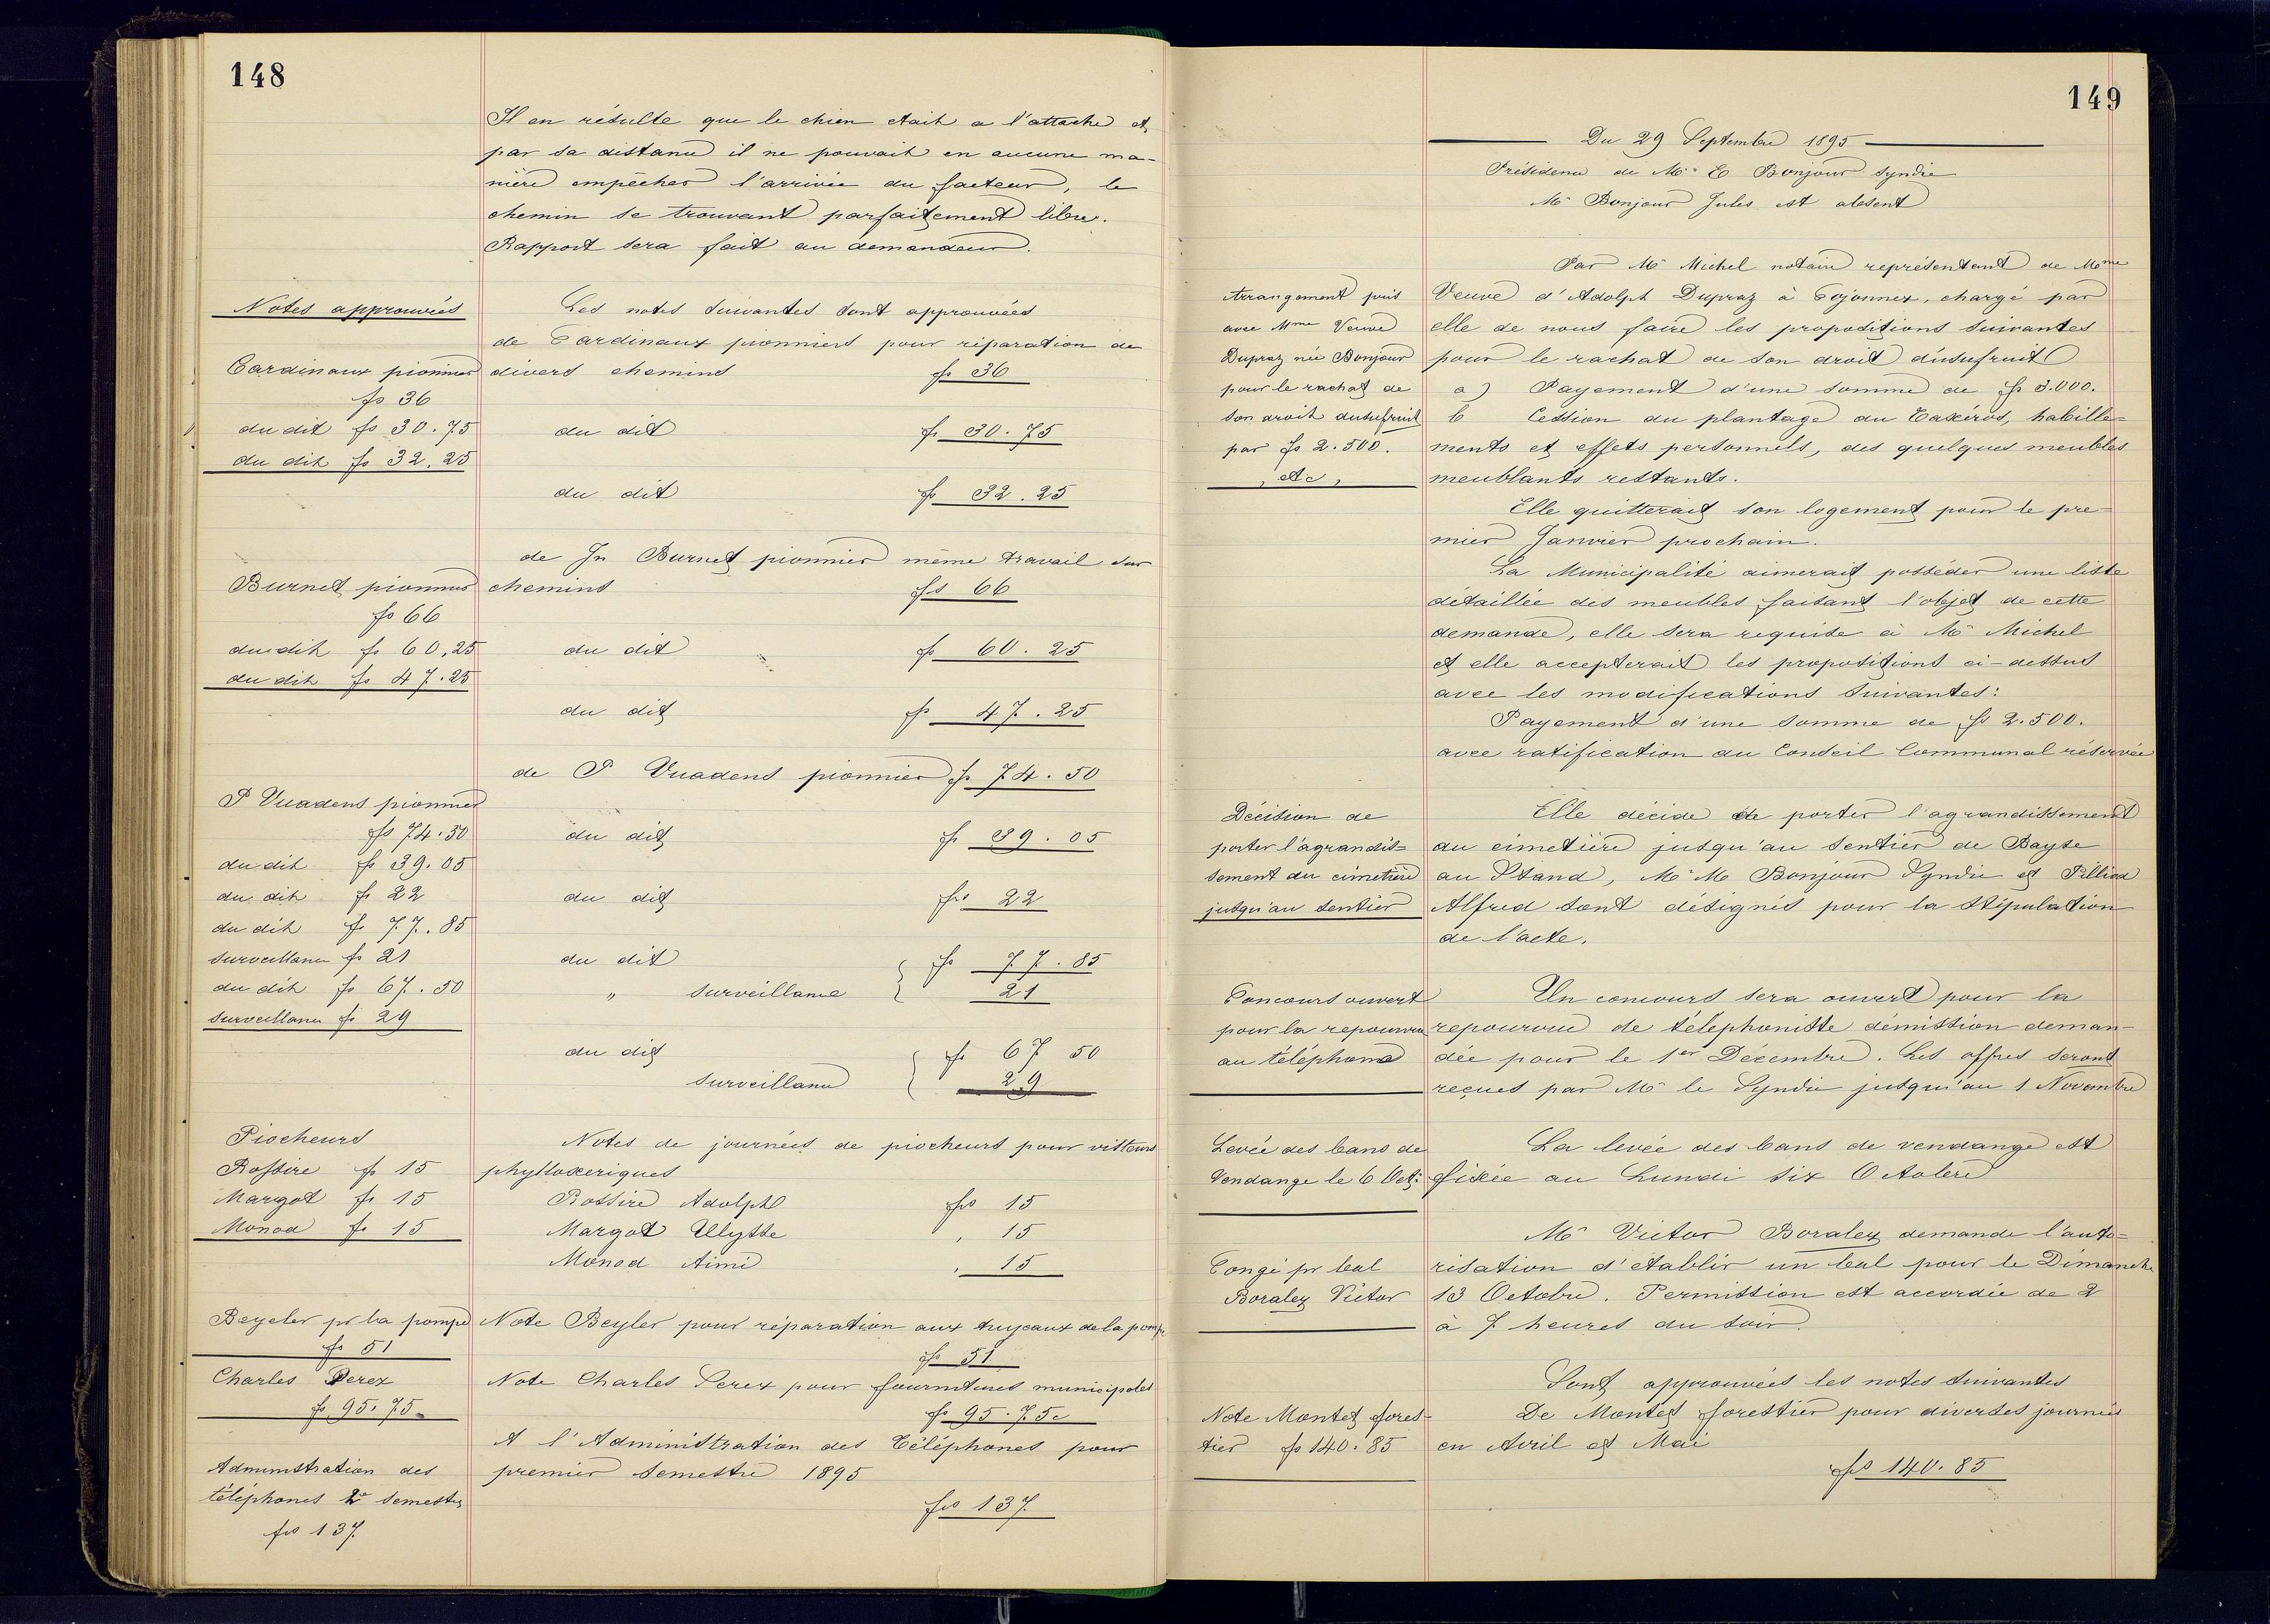 148
Il en résulte que le chien était a l'attache et
par sa distance il ne pouvait en aucune ma-
nière empêcher l'arrivée du facteur, le
chemin se trouvant parfaitement libre.
Rapport sera fait au demandeur.
Notes approuvées
Les notes suivantes sont approuvées
de Cardinaux pionniers pour réparation de
Cardinaux pionnier
divers chemins fs 36
fs 36
du dit fs 30.75
du dit fr 30.75
du dit fs 32.25
du dit fs 32.25
de Jn Burnet pionnier même travail sur
Burnet pionnier
chemins fs 66
fs 66
du dit fs 60,25
du dit fs 60.25
du dit fs 47.25
du dit fs 47.25
de P Vuadens pionnier fs 74.50
P Vuadens pionnier
fs 74.50
du dit fs 39.05
du dit fs 39.05
du dit fr 22
du dit frs 22
du dit fs 77.85
surveillance fs 21
du dit fs 77.85
du dit fs 67.50
" surveillance 21
surveillance fs 29
du dit fs 67 50
surveillance 29
Piocheurs
Notes de journées de piocheurs pour visiteurs
Rossire fs 15
phylloxeriques
Margot fs 15
Rossire Adolphe frs 15
Monod fs 15
Margot Ulysse " 15
Monod Aimé " 15
Beyeler pr la pompe
Note Beyler pour réparation aux tuyeaux de la pompe
fs 51
fs 51
Charles Perex
Note Charles Perex pour fournitures municipales
fs 95.75
fs 95.75c
A l'Administration des Téléphones pour
Administration des
premier semestre 1895
téléphones 2e semestre
frs 137
frs 137
149
Du 29 Septembre 1895
Présidence de Mr E Bonjour syndic
Mr Bonjour Jules est absent
Par Mr Michel notaire représentant de Mme
Arrangement pris
Veuve d'Adolph Dupraz à Cojonnex, chargé par
avec Mme Veuve
elle de nous faire les propositions suivantes
Dupraz née Bonjour
pour le rachat de son droit d'usufruit
pour le rachat de
a) Payement d'une somme de fs 3.000.
son droit dusufruit
b Cession du plantage au, habille-
par fs 2.500.
ments et effets personnels, des quelques meubles
, etc,
meublants restants.
Elle quitterait son logement pour le pre-
mier Janvier prochain.
La Municipalité aimerait posséder une liste
détaillée des meubles faisant l'objet de cette
demande, elle sera requise à Mr Michel
et elle accepterait les propositions ci-dessus
avec les modifications suivantes:
Payement d'une somme de fs 2.500.
avec ratification du Conseil Communal réservée
Décision de
Elle décide de porter l'agrandissement
porter l'agrandis-
du cimetière jusqu'au sentier de Bayse
sement du cimetière
au Stand, Mr M Bonjour Syndic et Pilliod
jusqu'au sentier
Alfred sont désignés pour la stipulation
de l'acte.
Concours ouvert
Un concours sera ouvert pour la
pour la repourvue
repourvue de télephoniste démission deman-
au téléphone
dée pour le 1er Décembre. Les offres seront
reçues par Mr le Syndic jusqu'au 1 Novembre
Levée des bans de
La levée des bans de vendange est
Vendange le 6 Oct:
fixée au Lundi six Octobre
Mr Victor Boraley demande l'auto-
Congé pr bal
risation d'établir un bal pour le Dimanche
Boraley Victor
13 Octobre. Permission est accordée de 2
à 7 heures du soir.
Sont approuvées les notes suivantes
Note Montet fores-
De Montet forestier pour diverses journées
tier fs 140.85
en Avril et Mai
frs 140.85